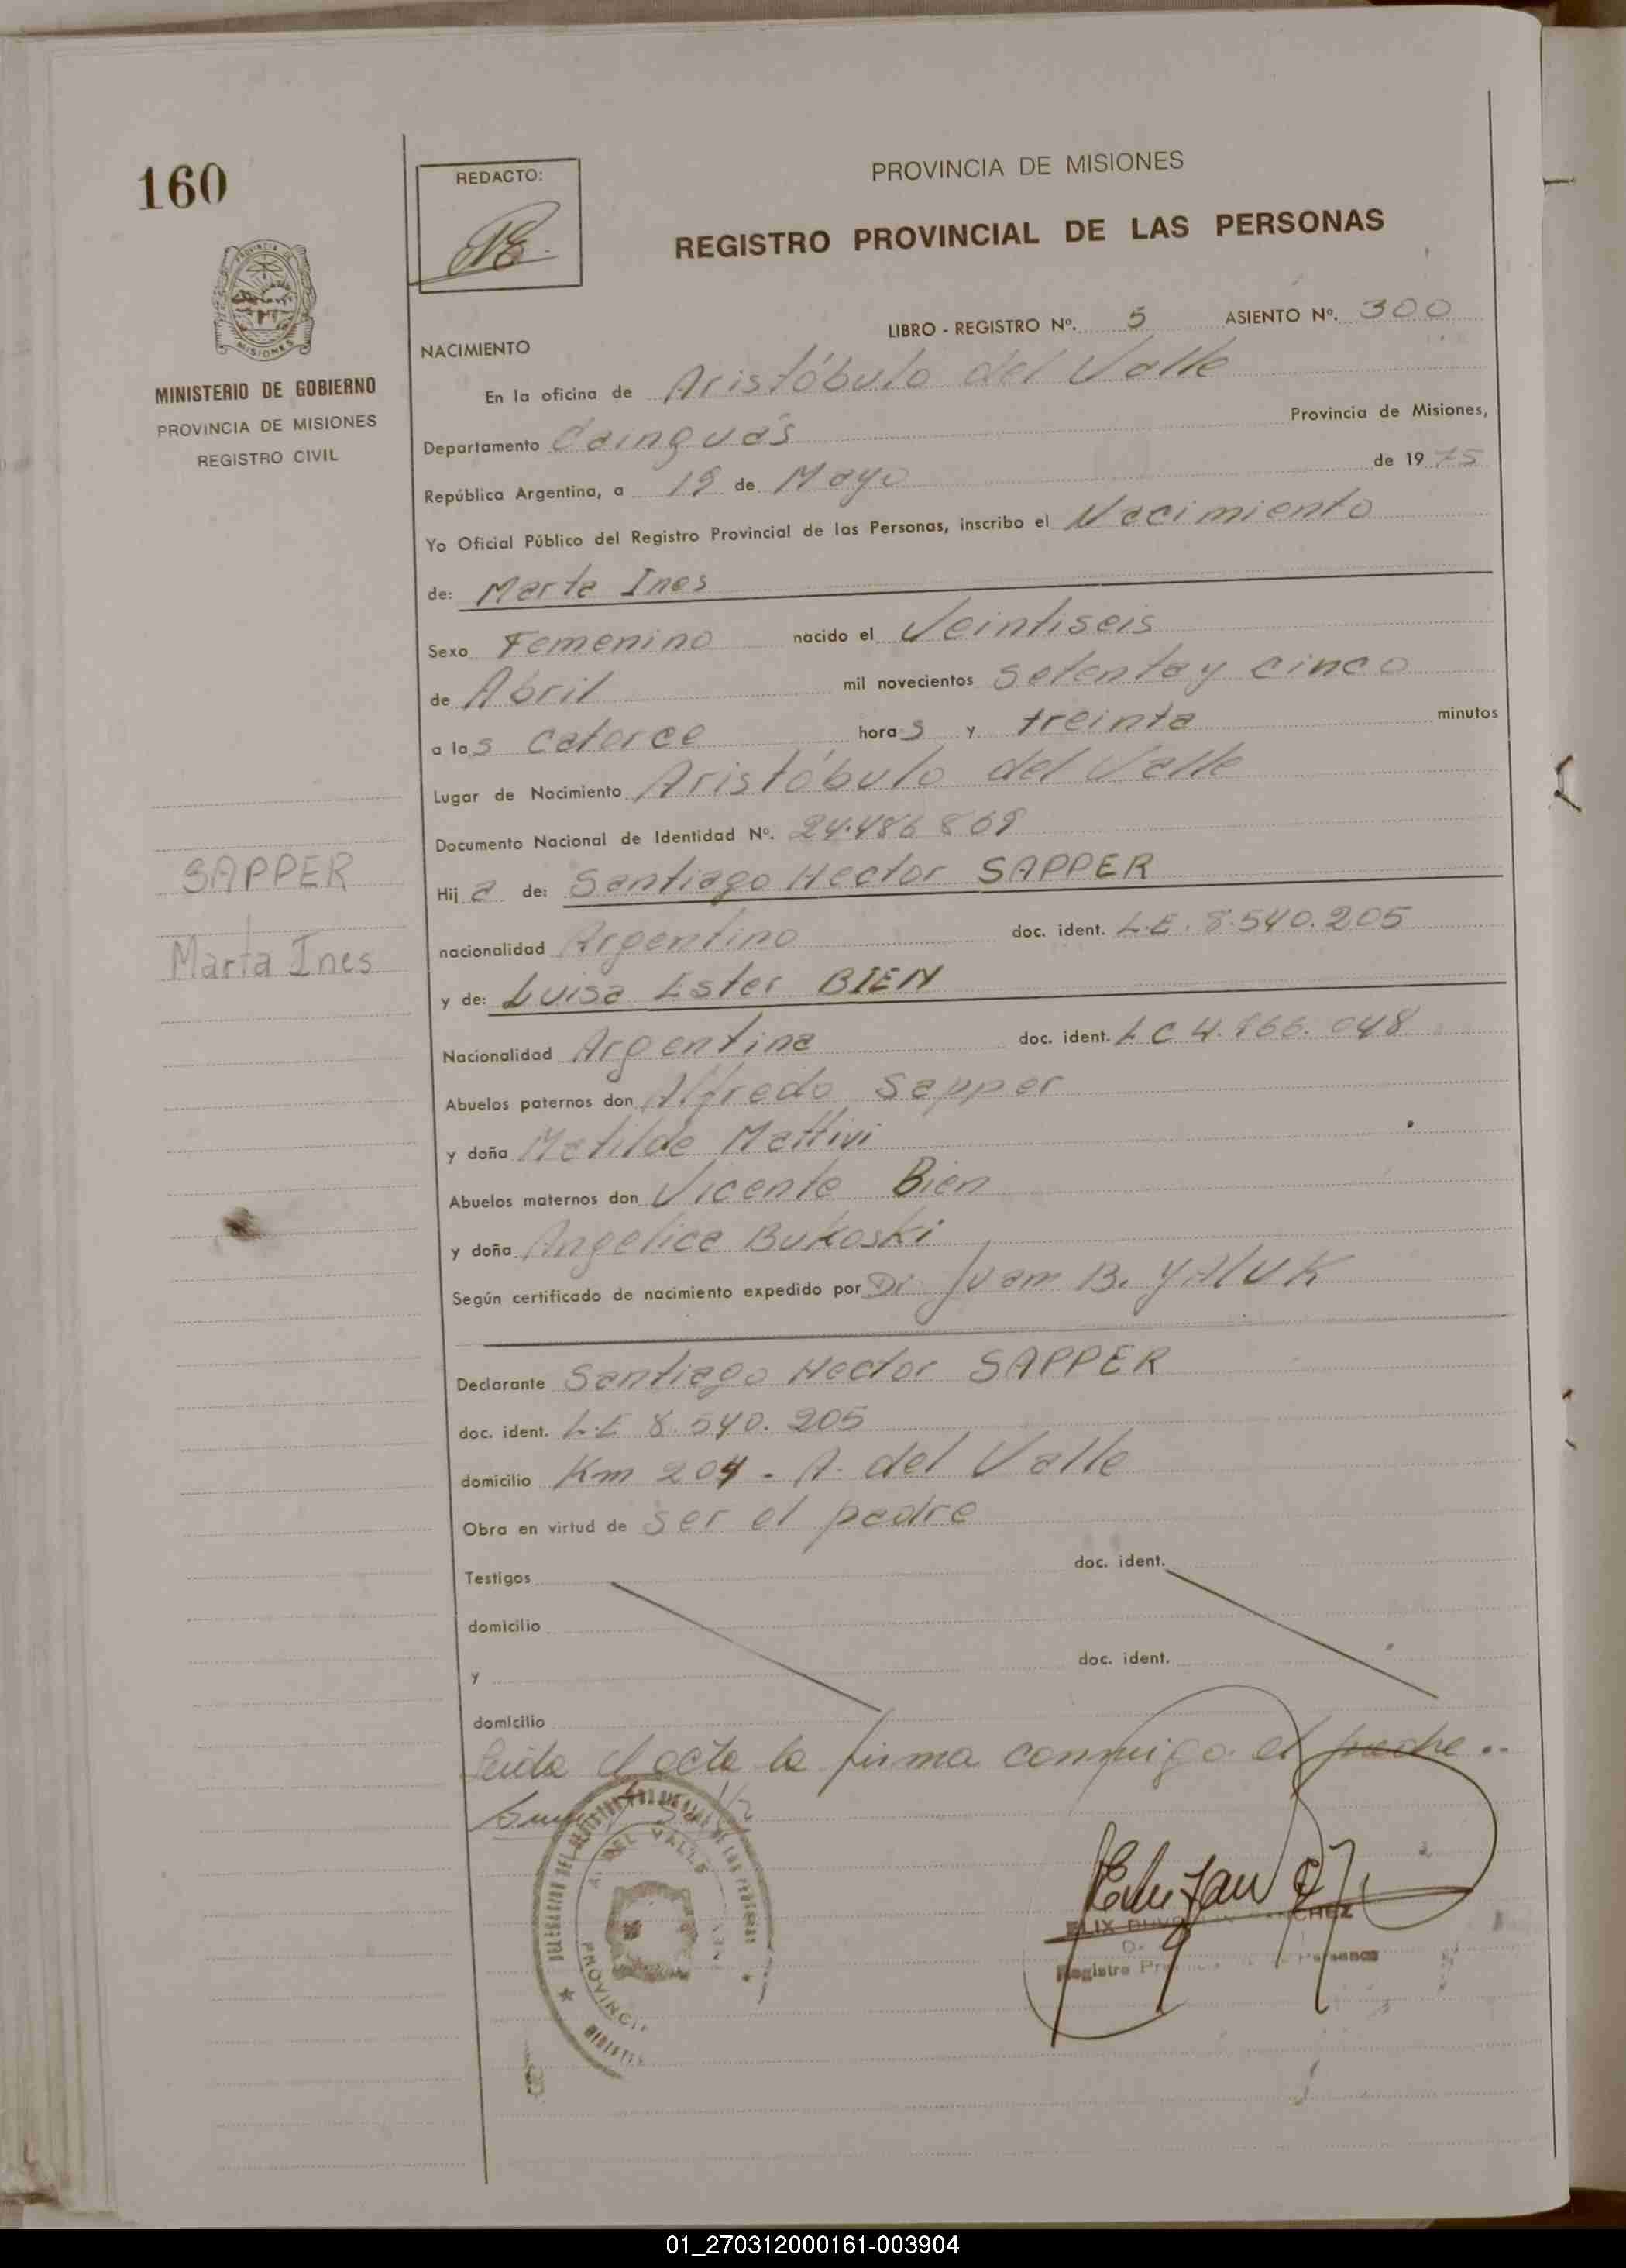 160
REDACTO:
PROVINCIA DE MISIONES
REGISTRO PROVINCIAL DE LAS PERSONAS
PROVINCIA DE
MISIONES
MINISTERIO DE GOBIERNO
PROVINCIA DE MISIONES
REGISTRO CIVIL
LIBRO - REGISTRO Nº. 5 ASIENTO Nº. 300
NACIMIENTO
En la oficina de Aristóbulo del Valle
Departamento Cainguás Provincia de Misiones,
República Argentina, a 19 de Mayo de 1975
Yo Oficial Público del Registro Provincial de las Personas, inscribo el Nacimiento
de: Marta Ines
Sexo Femenino nacido el Veintiseis
de Abril mil novecientos setenta y cinco
a las catorce horas y treinta minutos
Lugar de Nacimiento Aristóbulo del Valle
Documento Nacional de Identidad Nº. 24.486 869
SAPPER
Marta Ines
Hija de: Santiago Hector SAPPER
nacionalidad Argentino doc. ident. L.E. 8.540.205
y de: Luisa Ester BIEN
Nacionalidad Argentina doc. ident. L C 4.866.048
Abuelos paternos don Alfredo Sapper
y doña Matilde Mattivi
Abuelos maternos don Vicente Bien
y doña Angelica Bukoski
Según certificado de nacimiento expedido por Dr Juam B. YALUK
Declarante Santiago Hector SAPPER
doc. ident. L.E 8.540.205
domicilio Km 204 - A. del Valle
Obra en virtud de ser el padre
Testigos doc. ident.
domicilio
y doc. ident.
domicilio
Leida el acta la firma conmigo el padre..
DEL VALLE
PROVINCIA
MISIONES
SANCHEZ
Registro Personas
01_270312000161-003904